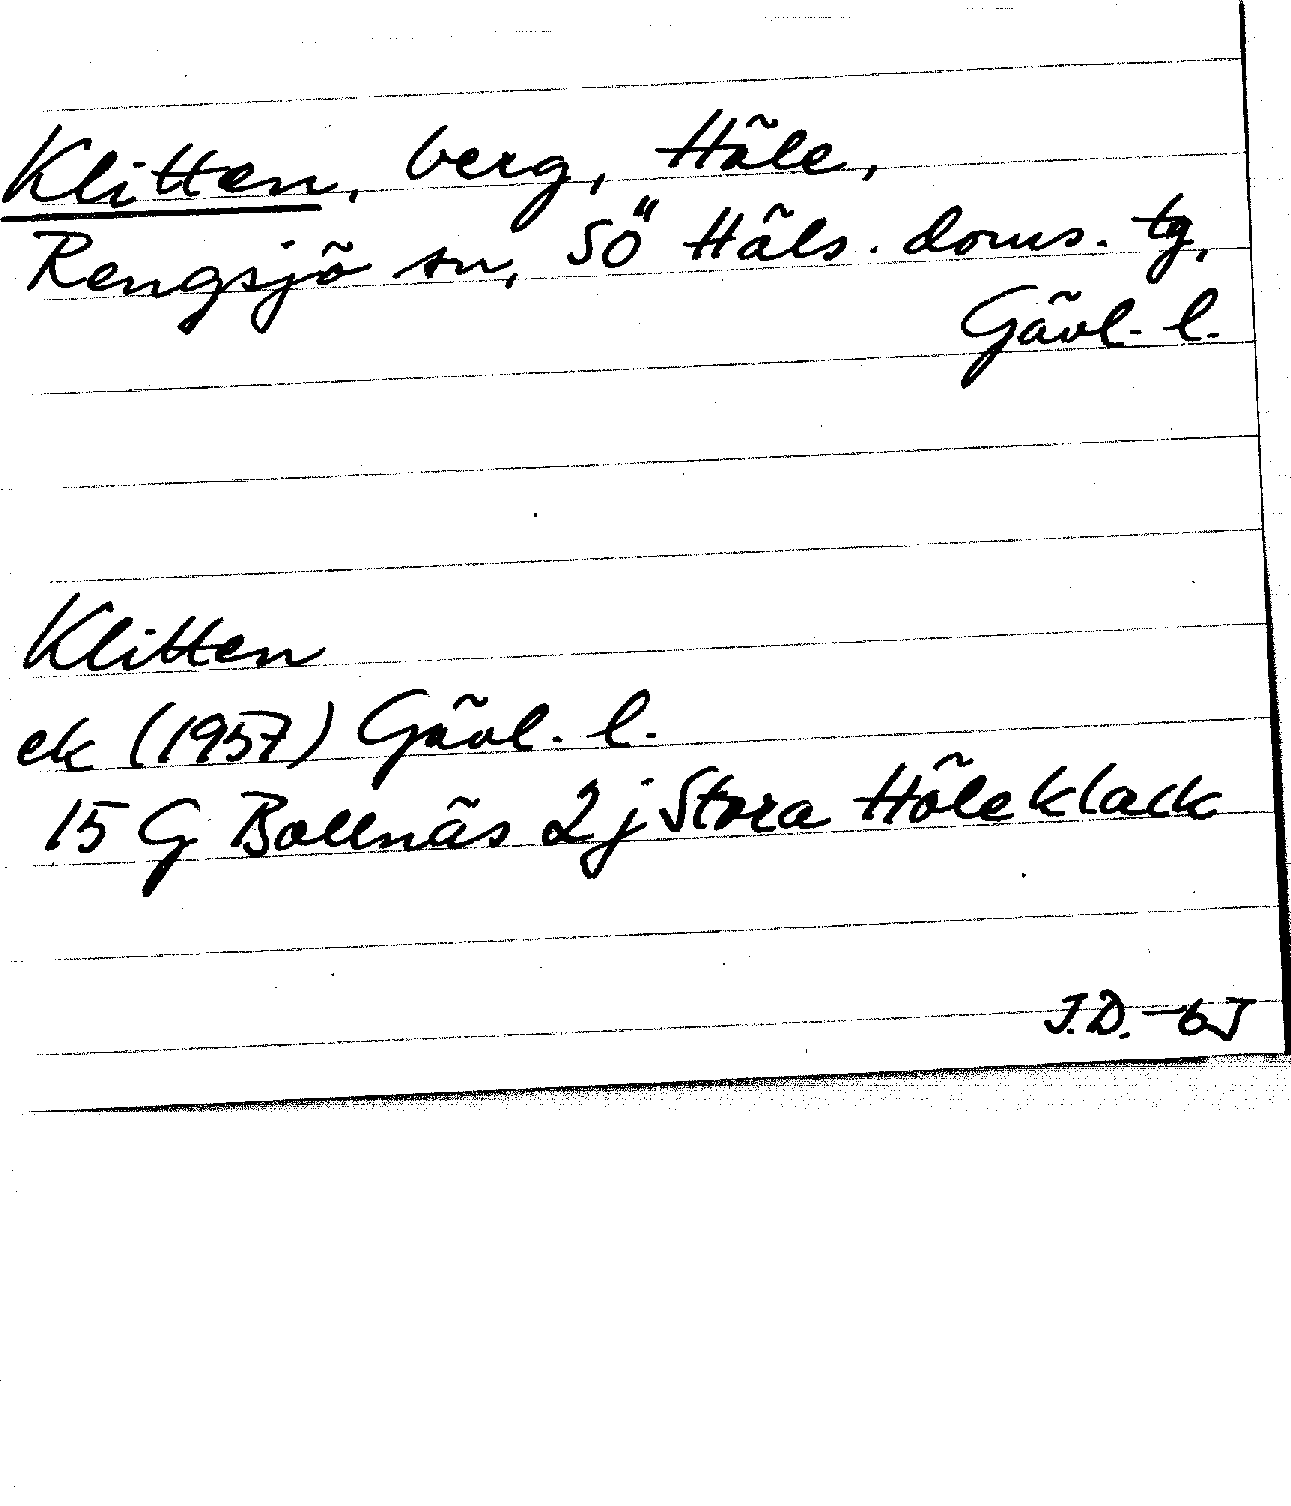 Klitten, berg, Höle,
Rengsjö sn, SÖ Häls. doms. tg,
Gävl. l.
Klitten
ek (1957) Gävl. l.
15 G Bollnäs 2 j Stora Höleklack
J.D. -65